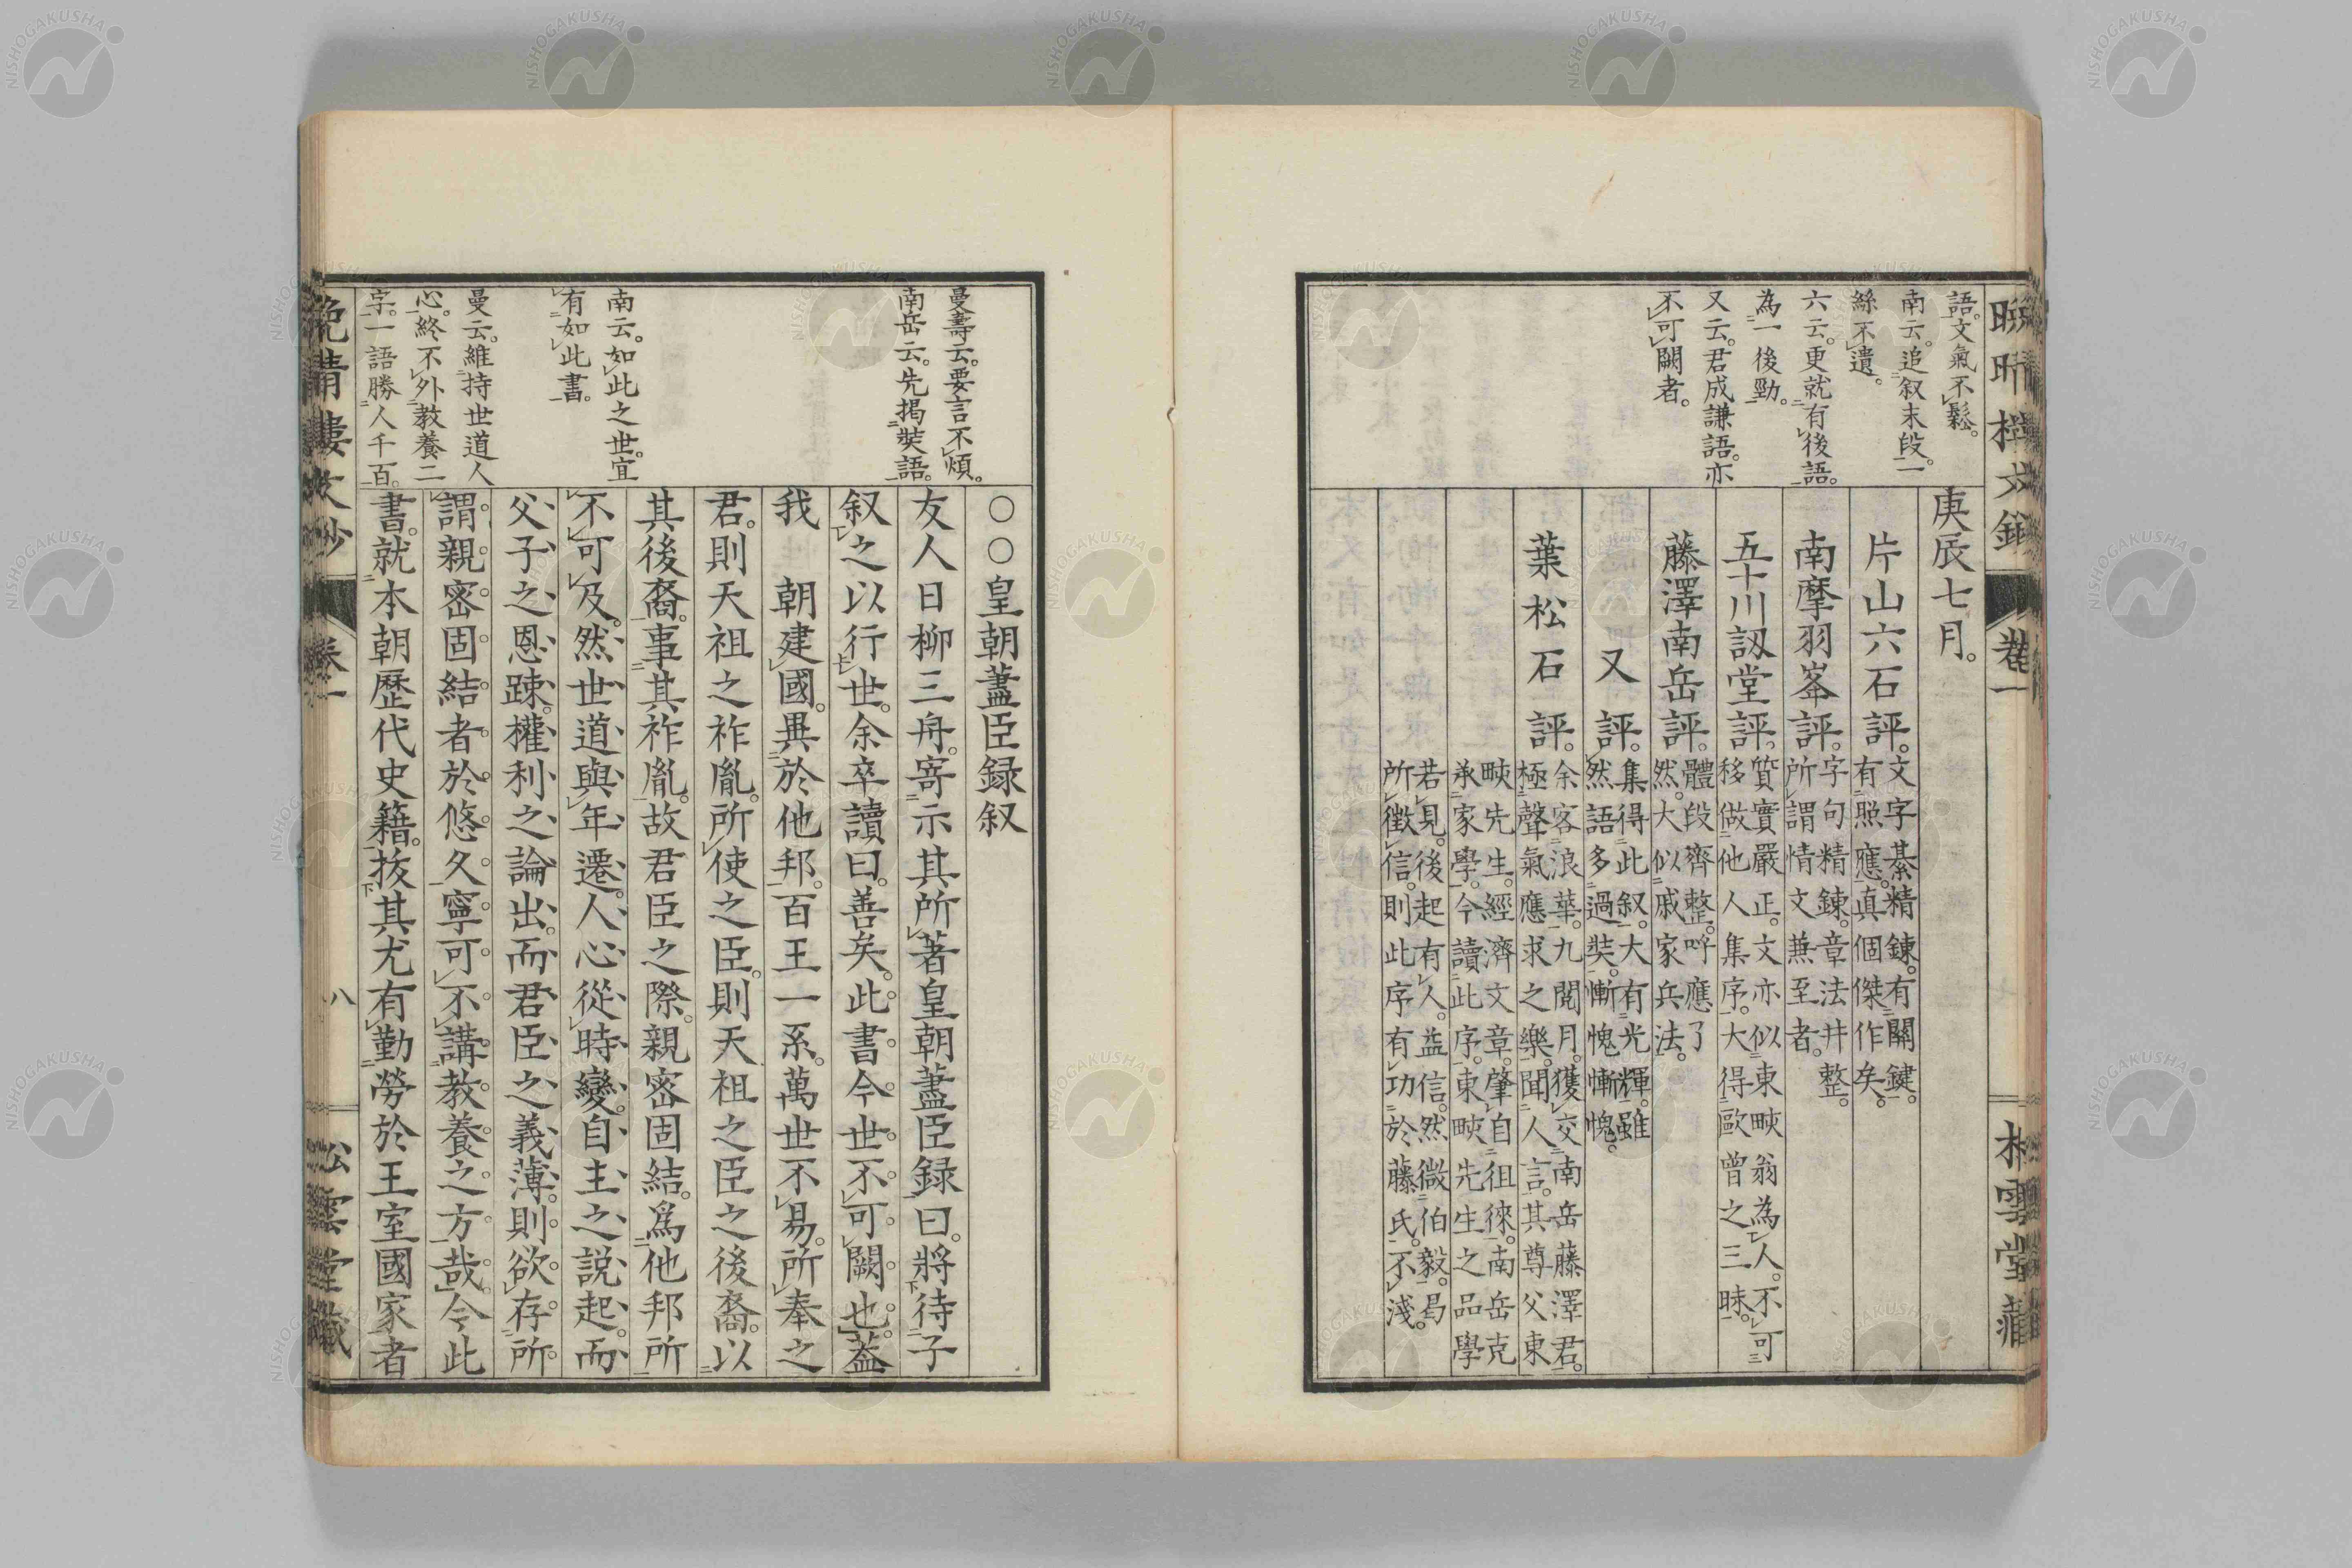 語。文氣不鬆。
南云。追叙末段。一
絲不遺。
六云。更就有後語。
為一後勁。
又云。君成謙語。亦
不可闕者。
庚辰七月。
片山六石評。文字綦精鍊。有關鍵。
有照應。真個傑作矣。
南摩羽峯評。字句精鍊。章法井整。
所謂情文兼至者。
五十川訒堂評。質實嚴正。文亦似東畡翁為人。不可
移做他人集序。大得歐曾之三昧。
藤澤南岳評。體段齊整。呼應了
然。大似戚家兵法。
又評。集得此叙。大有光輝。雖
然語多過奘。慚愧慚愧。
葉松石評。余客浪華。九閱月。獲交南岳藤澤君。
極聲氣應求之樂。聞人言。其尊父東
畡先生。經濟文章。肇自徂徠。南岳克
承家學。今讀此序。東畡先生之品學
若見。後起有人。益信。然微伯毅。曷
所徵信。則此序有功於藤氏。不淺。
卷一
曼壽云。要言不煩。
南岳云。先揭奘語。
南云。如此之世。宜
有如此書。
曼云。維持世道人
心。終不外教養二
字。一語勝人千百。
○○皇朝藎臣録叙
友人日柳三舟。寄示其所著皇朝藎臣録曰。將待子
叙之以行世。余卒讀曰。善矣。此書今世不可闕也。蓋
我　朝建國。異於他邦。百王一系。萬世不易。所奉之
君。則天祖之祚胤。所使之臣。則天祖之臣之後裔。以
其後裔。事其祚胤。故君臣之際。親密固結。爲他邦所
不可及。然世道與年遷。人心從時變。自主之説起。而
父子之恩踈。權利之論出。而君臣之義薄。則欲存所
謂親密固結者於悠久。寧可不講教養之方哉。今此
書。就本朝歴代史籍。抜其尤有勤勞於王室國家者
卷一
八